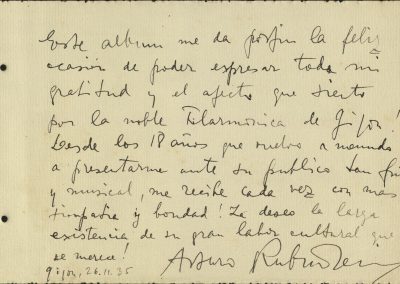 Este album me da por fin la feliz
ocasión de poder expresar toda mi
gratitud y el afecto que siento
por la noble Filarmónica de Gijon!
Desde los 18 años que vuelvo a menudo
a presentarme ante su publico tan fino
y musical, me recibe cada vez con mas
simpatia y bondad! Le deseo la larga
existencia de su gran labor cultural que
se merece!
Arturo Rubinstein
Gijon, 26.11.35